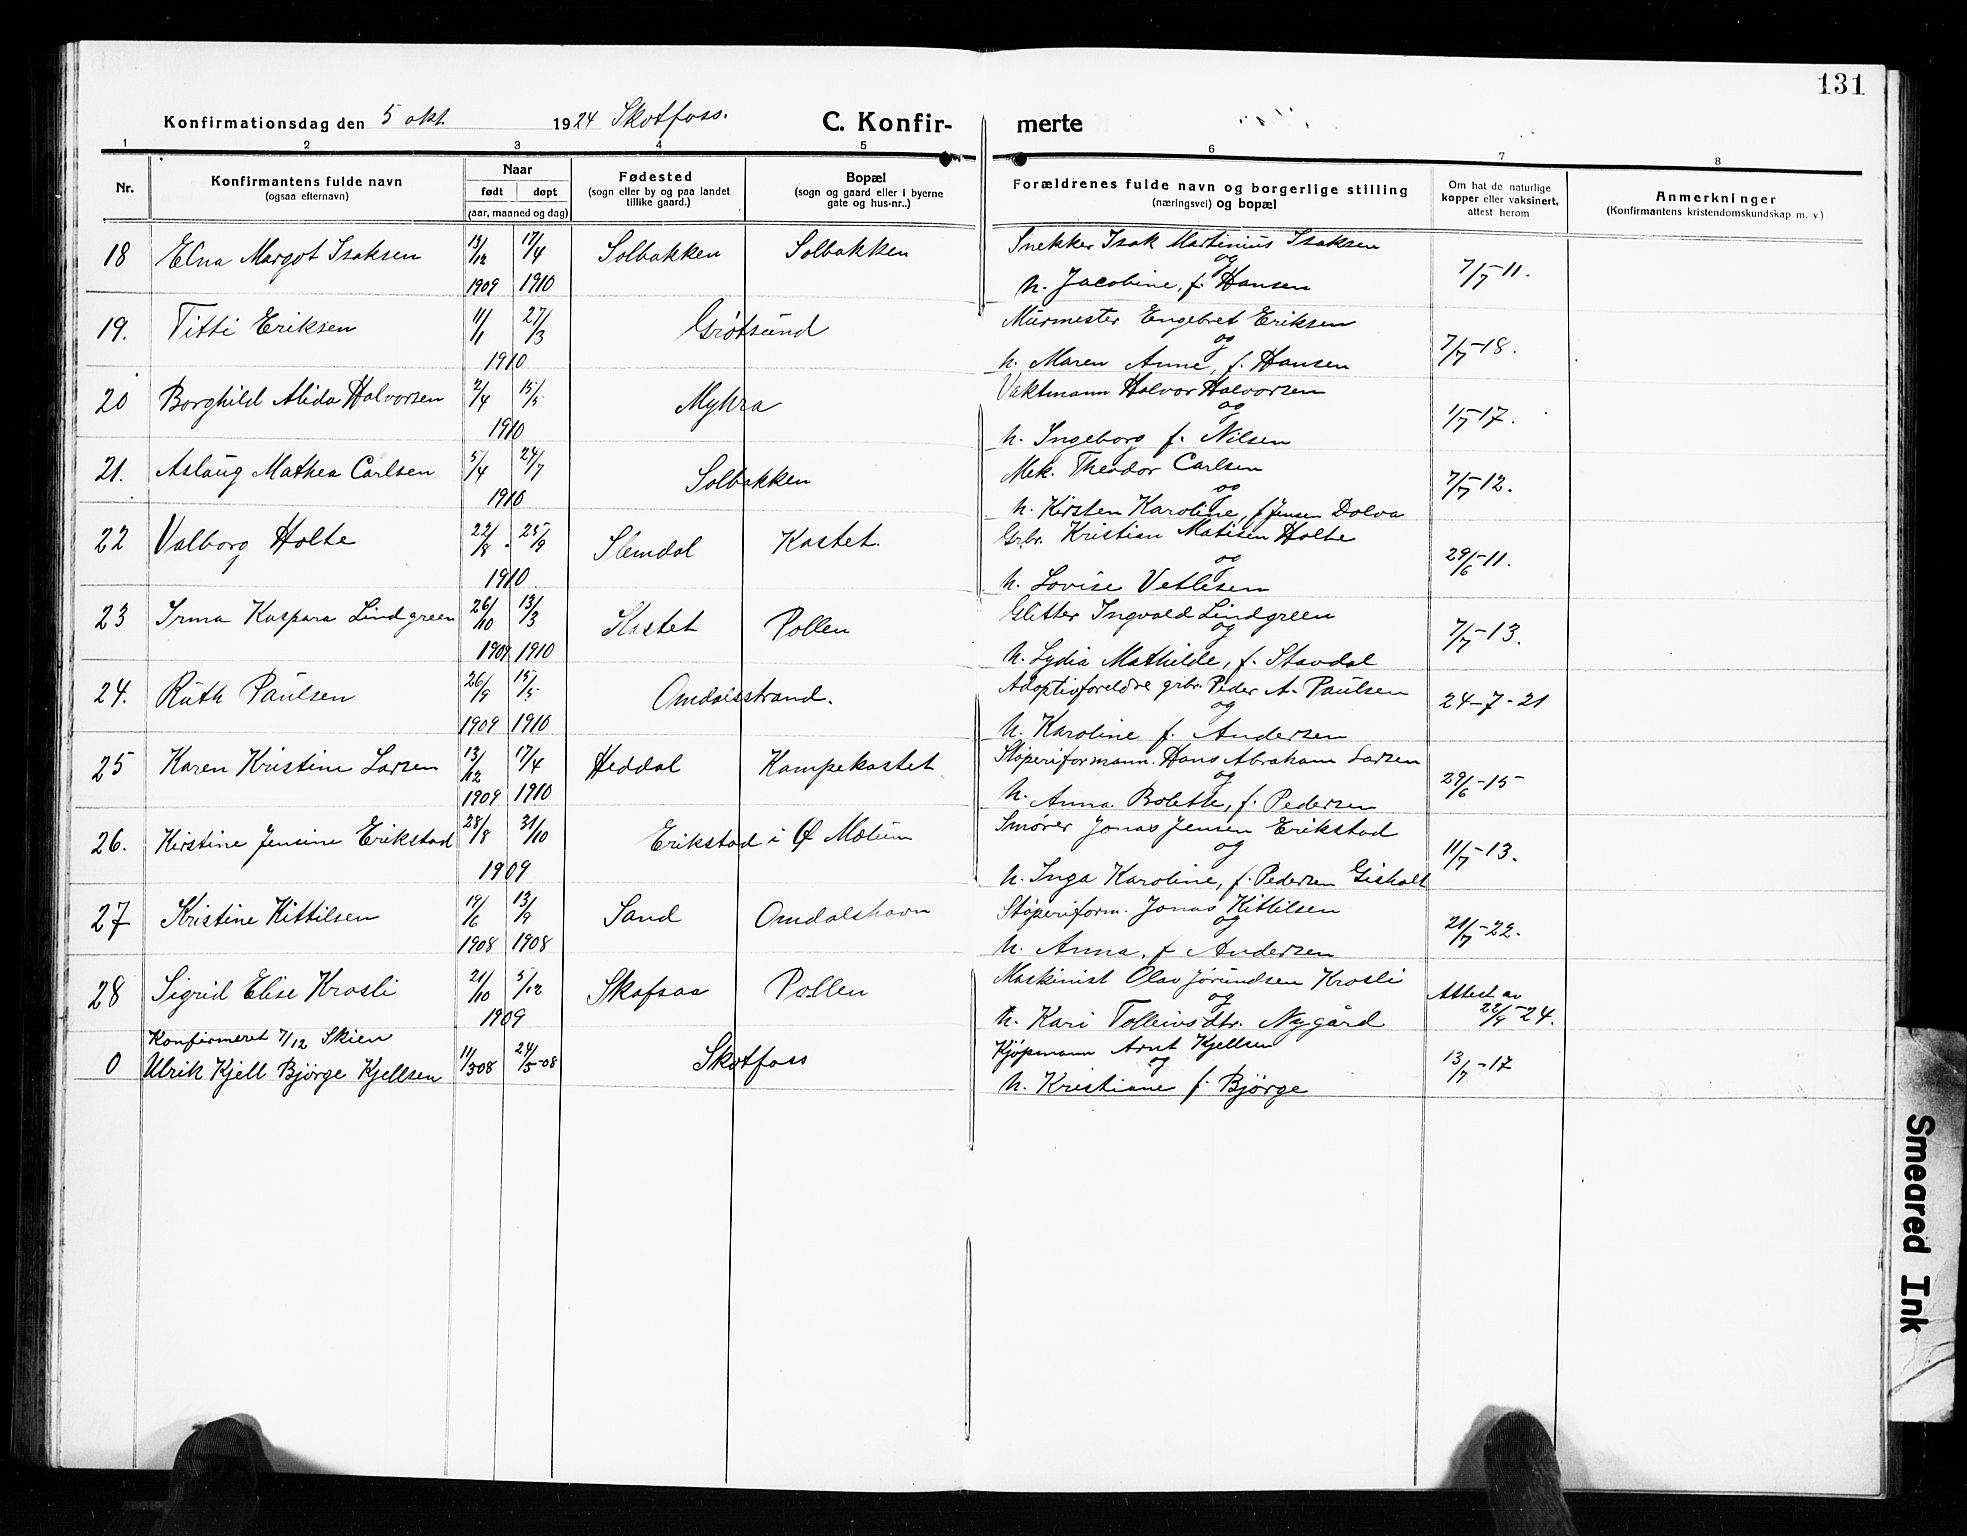 131
Konfirmationsdag den 5 okt. 1924 Skotfoss. C. Konfir- merte
1 2 3 4 5 6 7 8
Nr. Konfirmantens fulde navn (ogsaa efternavn) Naar født døpt (aar, maaned og dag) Fødested (sogn eller by og paa landet tillike gaard.) Bopæl (sogn og gaard eller i byerne gate og hus-nr..) Forældrenes fulde navn og borgerlige stilling (næringsvei) og bopæl Om hat de naturlige kopper eller vaksinert, attest herom Anmerkninger (Konfirmantens kristendomskundskap m. v.)
18 Elna Margot Isaksen 13/12 1909 17/4 1910 Solbakken Solbakken Snekker Isak Martinius Isaksen
og
h. Jacobine, f. Hansen 7/7-11.
19. Titti Eriksen 11/1 27/3 1910 Grøtsund Murmester Engebret Eriksen
og
h. Maren Anne, f. Hansen 7/7-18.
20 Borghild Alida Halvorsen 2/4 15/5 1910 Myhra Vaktmann Halvor Halvorsen
og
h. Ingeborg f. Nilsen 1/7-17.
21. Aslaug Mathea Carlsen 5/4 24/7 1910 Solbakken Mek. Theodor Carlsen
og
h. Kirsten Karoline, f. Jensen Dolva 7/7-12.
22 Valborg Holte 22/8 25/9 1910 Slemdal Kastet. Grbr. Kristian Matisen Holte
og
h. Lovise Vetlesen 29/6-11.
23 Irma Kaspara Lindgreen 26/10 1909 13/3 1910 Kastet Pollen Glitter Ingvald Lindgreen
og
h. Lydia Mathilde, f. Stavdal 7/7-13.
24. Ruth Paulsen 26/9 1909 15/5 1910 Omdalsstrand. Adoptivforeldre grbr. Peder A. Paulsen
og
h. Karoline f. Andersen 24-7-21
25 Karen Kristine Larsen 13/12 1909 17/4 1910 Heddal Kampekastet Støperiformann. Hans Abraham Larsen
og
h. Anna Bolette, f. Pedersen 29/6-15
26. Kirstine Jensine Erikstad 28/8 31/10 1909 Erikstad i Ø Mælum Smører Jonas Jensen Erikstad
og
h. Inga Karoline, f. Pedersen Gisholt 11/7-13.
27 Kristine Kittilsen 19/6 1908 13/9 1908 Sand Omdalshavn Støperiform. Jonas Kittilsen
og
h. Anna, f. Andersen 21/7-22.
28 Sigrid Elise Krosli 21/10 5/12 1909 Skafsaa Pollen Maskinist Olav Jørundsen Krosli
og
h. Kari Tolleivsdtr. Nygård Attest av 22/9-24.
Konfirmeret 7/12 Skien
0 Ulrik Kjell Bjørge Kjellsen 11/3 08 24/5-08 Skotfoss Kjøpmann Arnt Kjellsen
og
h. Kristiane f. Bjørge 13/7-17
Smeared Ink